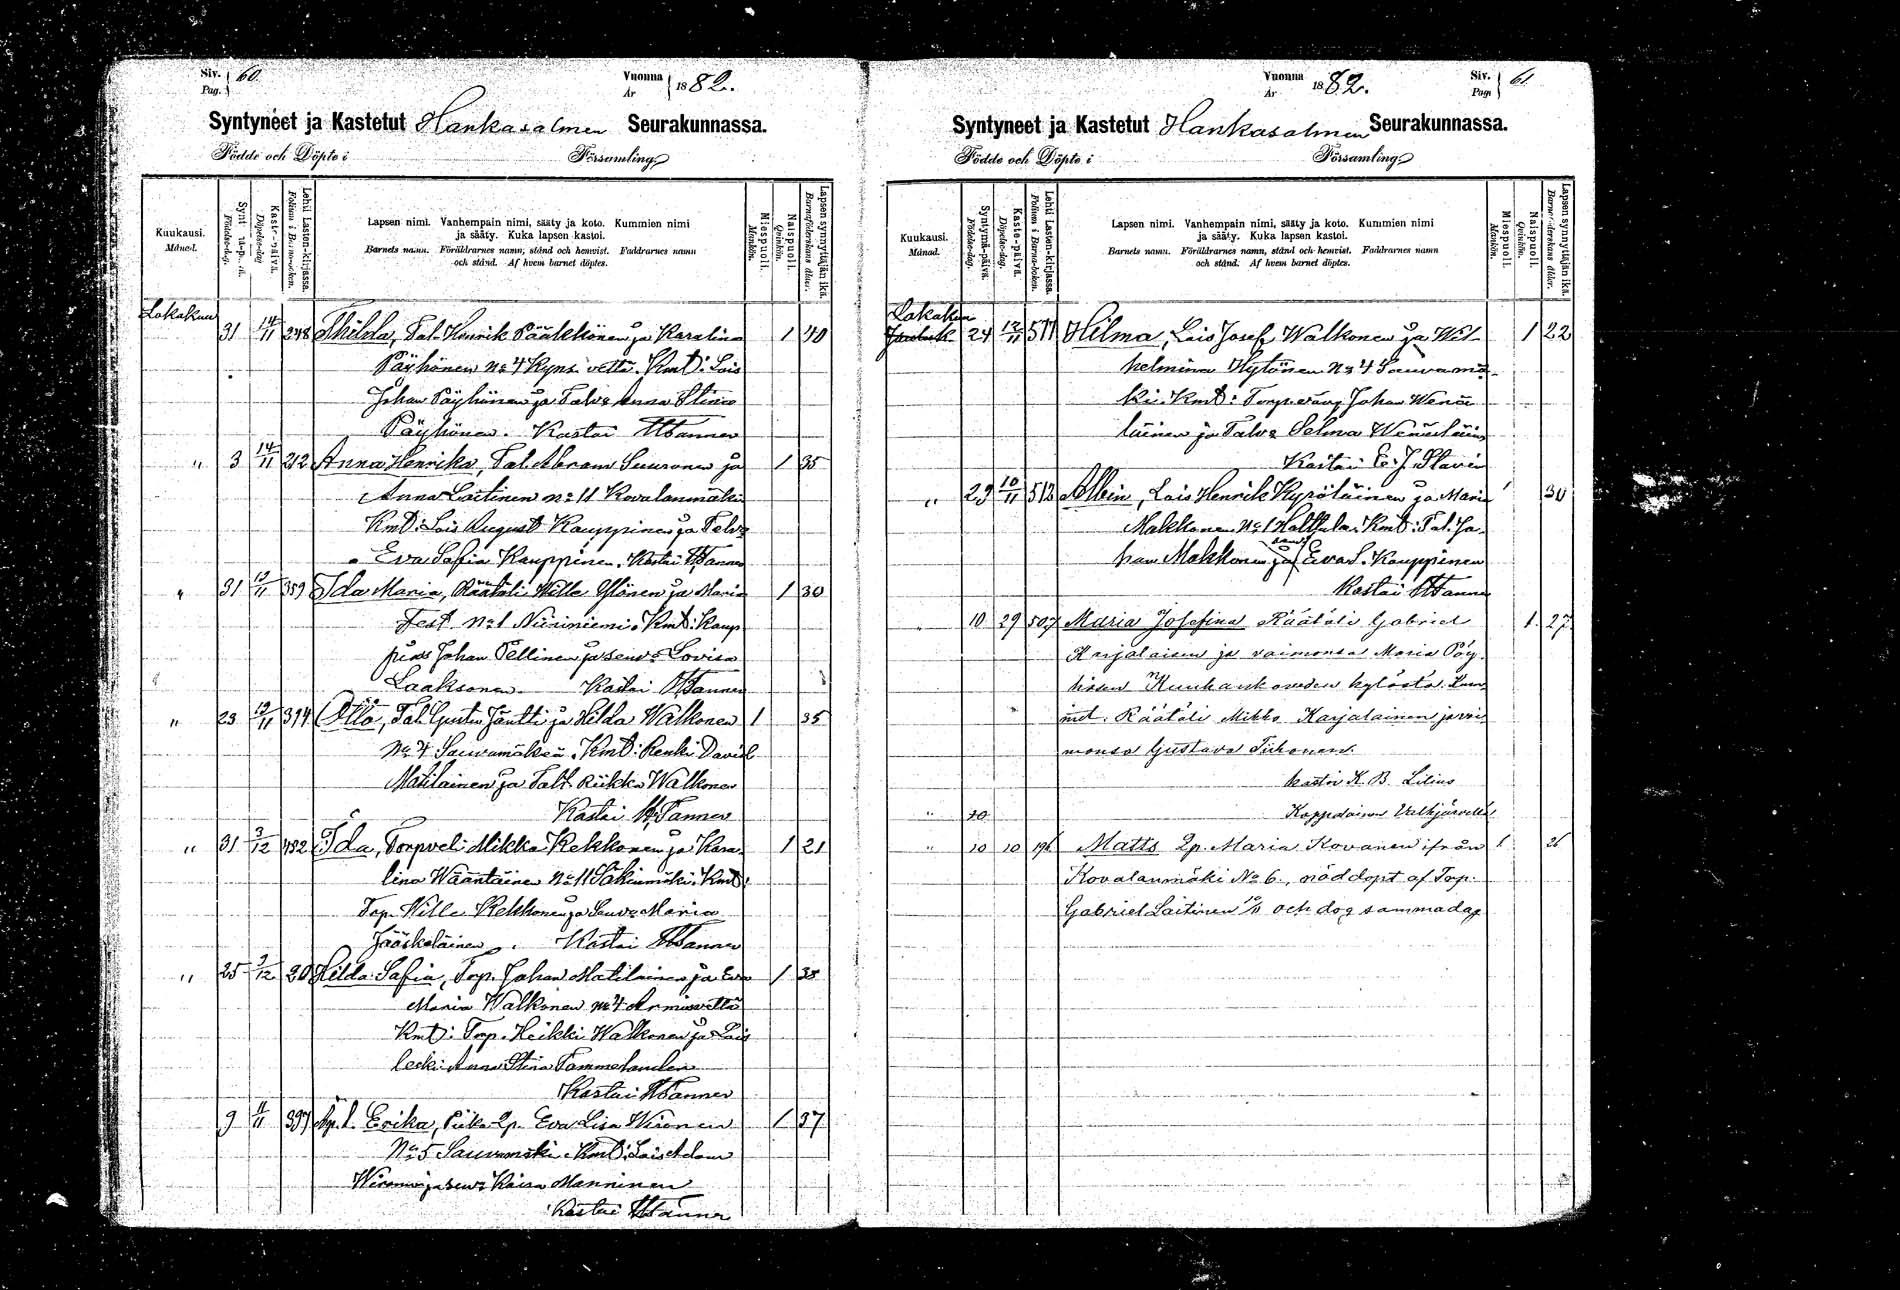 Siv. 60. Vuonna 1882.
Pag. År
Syntyneet ja Kastetut Hankasalmen Seurakunnassa.
Födde och Döpte i Församling
Kuukausi. Månad.
Synt Födelse-dag.
Kaste-päivä. Döpelse-dag
Lehti Lasten-kirjassa. Folium i Barna-boken.
Lapsen nimi. Vanhempain nimi, sääty ja koto. Kummien nimi
ja sääty. Kuka lapsen kastoi.
Barnets namn. Föräldrarnes namn, stånd och hemvist. Faddrarnes namn
och stånd. Af hvem barnet döptes.
Miespuoli. Mankön.
Naispuoli. Qvinkön.
Lapsen synnyttäjän ikä. Barnaföderskans ålder.
Lokakuu
31 14/11 248 Thilda, Tal. Henrik Pääkkönen ja Karalina 1 40
Päyhönen No 4 Kyns vettä. Kmt: Lois
Johan Päyhönen ja Talvs Anna Stina
Päyhönen. Kastai Tanner
" 3 14/11 212 Anna Henrika, Tal. Abram Suuronen ja 1 35
Anna Laitinen No 11 Kovalanmäki
Kmt: Lois August Kauppinen ja Talvs
Eva Safia Kauppinen. Kastai Tanner
" 31 12/11 359 Ida Maria, Räätäli Wille Ylönen ja Maria 1 30
Fest No 1 Niininiemi. Kmt: Kaup
Johan Tellinen ja Lovisa
Laaksonen. Kastai Tanner
" 23 12/11 314 Otto, Tal. Gustu Jäntti ja Hilda Walkonen 1 35
No 4 Sauvamäkeä. Kmt: Renki David
Matilainen ja Talt. Riikka Walkonen
Kastai Tanner
" 31 3/12 432 Ida, Torpveli Mikko Kekkonen ja Kara-
lina Wääntäinen No 11 Säkinmäki. Kmt: 1 21
Torp. Wille Kekkonen ja Maria
Jääskeläinen. Kastai Tanner
" 25 3/12 20 Hilda Safia, Torp. Johan Matilainen ja Eva 1 35
Maria Walkonen No 4 Armisvettä
Kmt: Torp. Heikki Walkonen ja Lois
leski Anna Stina Tammelander
Kastai Tanner
9 11/11 397 Äp. l. Erika, Piika Eva Lisa Wironen 1 37
No 5 Sauvamäki. Kmt: Lois Adam
Wironen ja Kaisa Manninen
Kastai Tanner
Vuonna 1882. Siv. 61
År Pag.
Syntyneet ja Kastetut Hankasalmen Seurakunnassa.
Födde och Döpte i Församling
Kuukausi. Månad.
Syntymä-päivä. Födelse-dag.
Kaste-päivä. Döpelse-dag.
Lehti Lasten-kirjassa. Folium i Barna-boken.
Lapsen nimi. Vanhempain nimi, sääty ja koto. Kummien nimi
ja sääty. Kuka lapsen kastoi.
Barnets namn. Föräldrarnes namn, stånd och hemvist. Faddrarnes namn
och stånd. Af hvem barnet döptes.
Miespuoli. Mankön.
Naispuoli. Qvinkön.
Lapsen synnyttäjän ikä. Barnaföderskans ålder.
Lokakuu
24 12/11 511 Hilma, Lois Josef Walkonen ja Wil- 1 22
helmina Hytönen No 4 Sauvamä-
ki. Kmt: Torp. Johan Wenä
läinen ja Talvs Selma Wenäläinen
Kastai E. J. Slavén
" 29 10/11 513 Albin, Lois Henrik Kyröläinen ja Maria 1 30
Makkonen No 1 Halttula. Kmt: Tal. Jo-
han Makkonen ja Eva S. Kauppinen
Kastai Tanner
" 10 29 507 Maria Josefina Räätäli Gabriel 1 27
Karjalaisen ja vaimonsa Maria Pöy
hösen Kuuhankaveden kylästä. Kum
mit. Räätäli Mikko Karjalainen ja vai
monsa Gustava Tiihonen.
kastoi K. B. Lilius
" 20 Kappalainen
" 10 10 196 Matts Maria Kovanen ifrån 1 26
Kovalanmäki No 6., nöddöpt af Torp.
Gabriel Laitinen 10/11 och dog samma dag